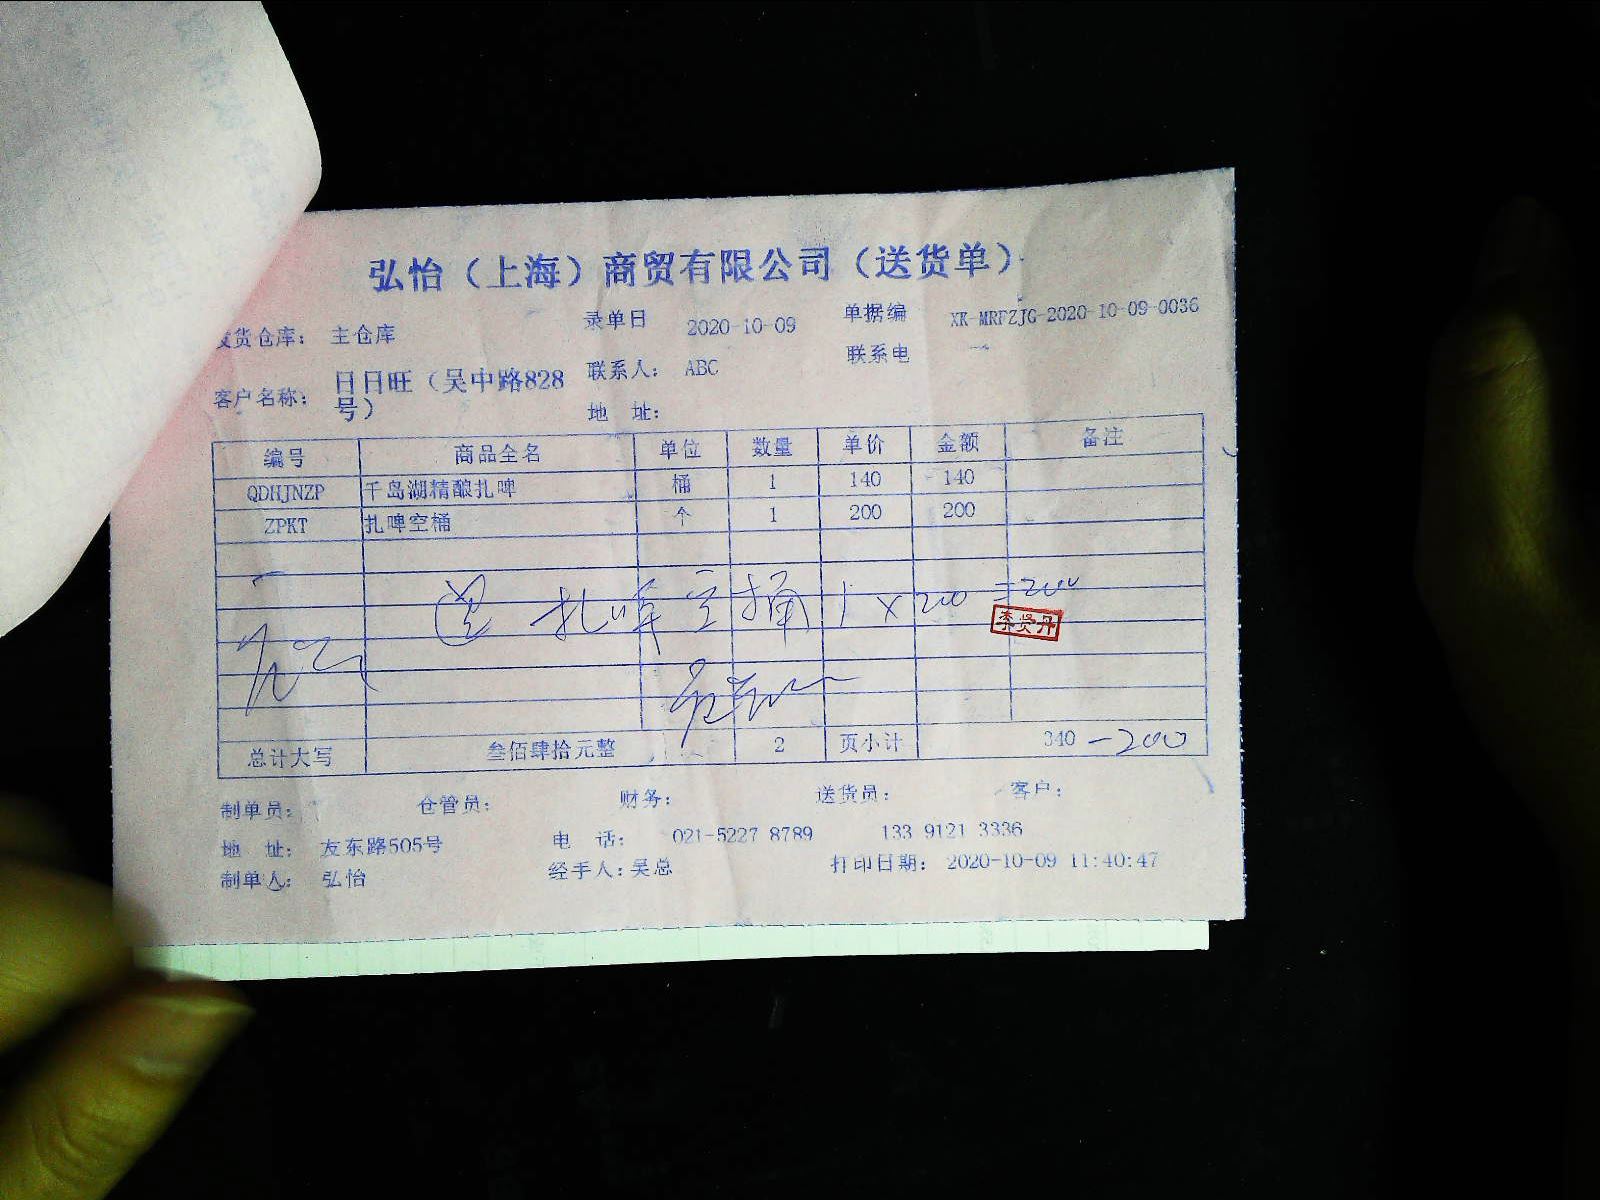 弘怡（上海）商贸有限公司（送货单）
发货仓库： 主仓库 录单日 2020-10-09 单据编 XK-MRFZJG-2020-10-09-0036
联系人： ABC 联系电
客户名称： 日日旺（吴中路828号） 地 址：
编号 商品全名 单位 数量 单价 金额 备注
QDHJNZP 千岛湖精酿扎啤 桶 1 140 140
ZPKT 扎啤空桶 个 1 200 200
退 扎啤空桶 1×200=200
李贤丹
总计大写 叁佰肆拾元整 2 页小计 340 -200
制单员： 仓管员： 财务： 送货员： 客户：
地 址： 友东路505号 电 话： 021-5227 8789 133 9121 3336
制单人： 弘怡 经手人：吴总 打印日期： 2020-10-09 11:40:47